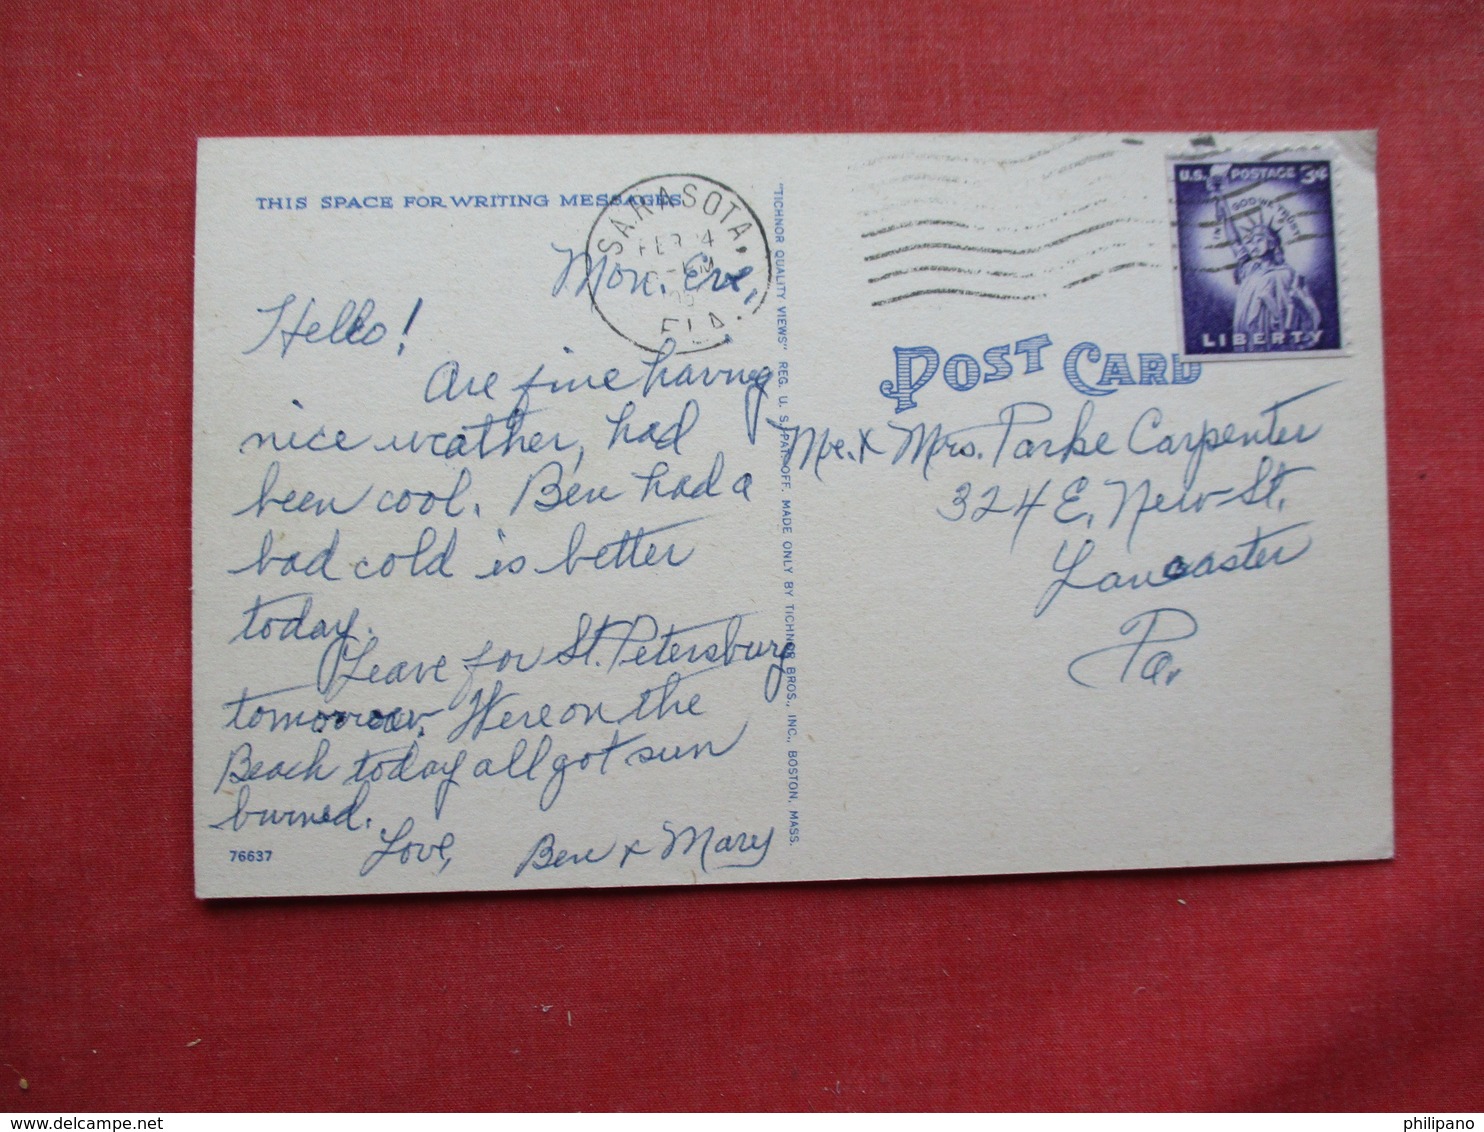 THIS SPACE FOR WRITING MESSAGES
SARASOTA,
FLA.
Mon. Eve,
Hello!
Are fine having
nice weather, had
been cool. Ben had a
bad cold is better
today.
Leave for St. Petersburg
tomorrow. Were on the
Beach today all got sun
burned.
Love,
Ben & Mary
76637
"TICHNOR QUALITY VIEWS" REG. U. S. PAT. OFF. MADE ONLY BY TICHNOR BROS., INC., BOSTON, MASS.
U.S. POSTAGE 3¢
IN GOD WE TRUST
LIBERTY
POST CARD
Mr. & Mrs. Parke Carpenter
324 E. New St.
Lancaster
Pa.
philipano
delcampe.net